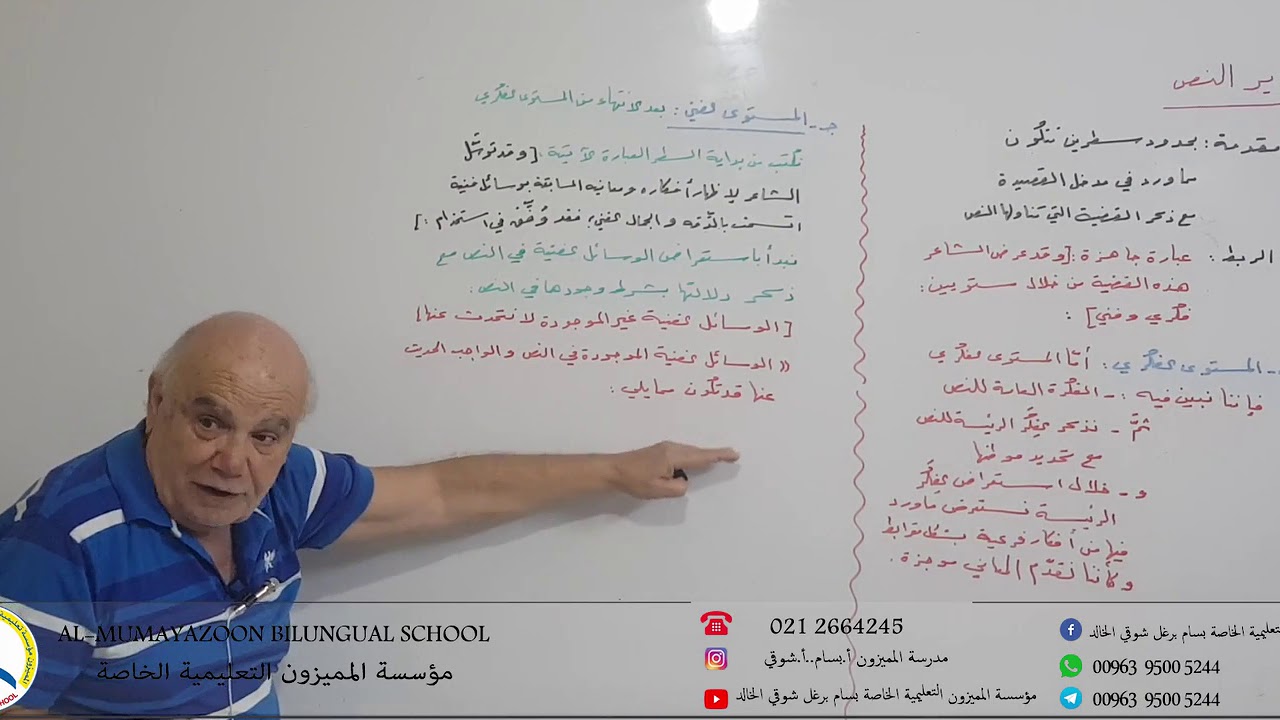 ير النص
مقدمة: بحدود سطرين تتكون
مما ورد في مدخل القصيدة
مع ذكر القضية التي تناولها النص
الربط: عبارة جاهزة: [وقد عرض الشاعر
هذه القضية من خلال مستويين:
فكري وفني]:
المستوى الفكري: أمّا المستوى الفكري
فإننا نبين فيه: - الفكرة العامة للنص
ثمَّ - نذكر الفِكَر الرئيسة للنص
مع تحديد موطنها
و - خلال استعراض الفِكَر
الرئيسة نستعرض ماورد
فيها من أفكار فرعية بشكل مترابط
وكأننا نقدّم المعاني موجزة.
جـ - المستوى الفني: بعد الانتهاء من المستوى الفكري
نكتب من بداية السطر العبارة الآتية: [وقد توسَّل
الشاعر لإظهار أفكاره ومعانيه السابقة بوسائل فنية
اتسمت بالدّقة والجمال الفني، فقد وُفِّق في استخدام:]
نبدأ باستعراض الوسائل الفنية في النص مع
ذكر دلالتها بشرط وجودها في النص.
[الوسائل الفنية غير الموجودة لا نتحدث عنها]
(( الوسائل الفنية الموجودة في النص والواجب الحديث
عنها قد تكون ممايلي:
AL-MUMAYAZOON BILUNGUAL SCHOOL
مؤسسة المميزون التعليمية الخاصة
021 2664245
مدرسة المميزون أ.بسام..أ.شوقي
مؤسسة المميزون التعليمية الخاصة بسام برغل شوقي الخالد
تعليمية الخاصة بسام برغل شوقي الخالد
00963 9500 5244
00963 9500 5244